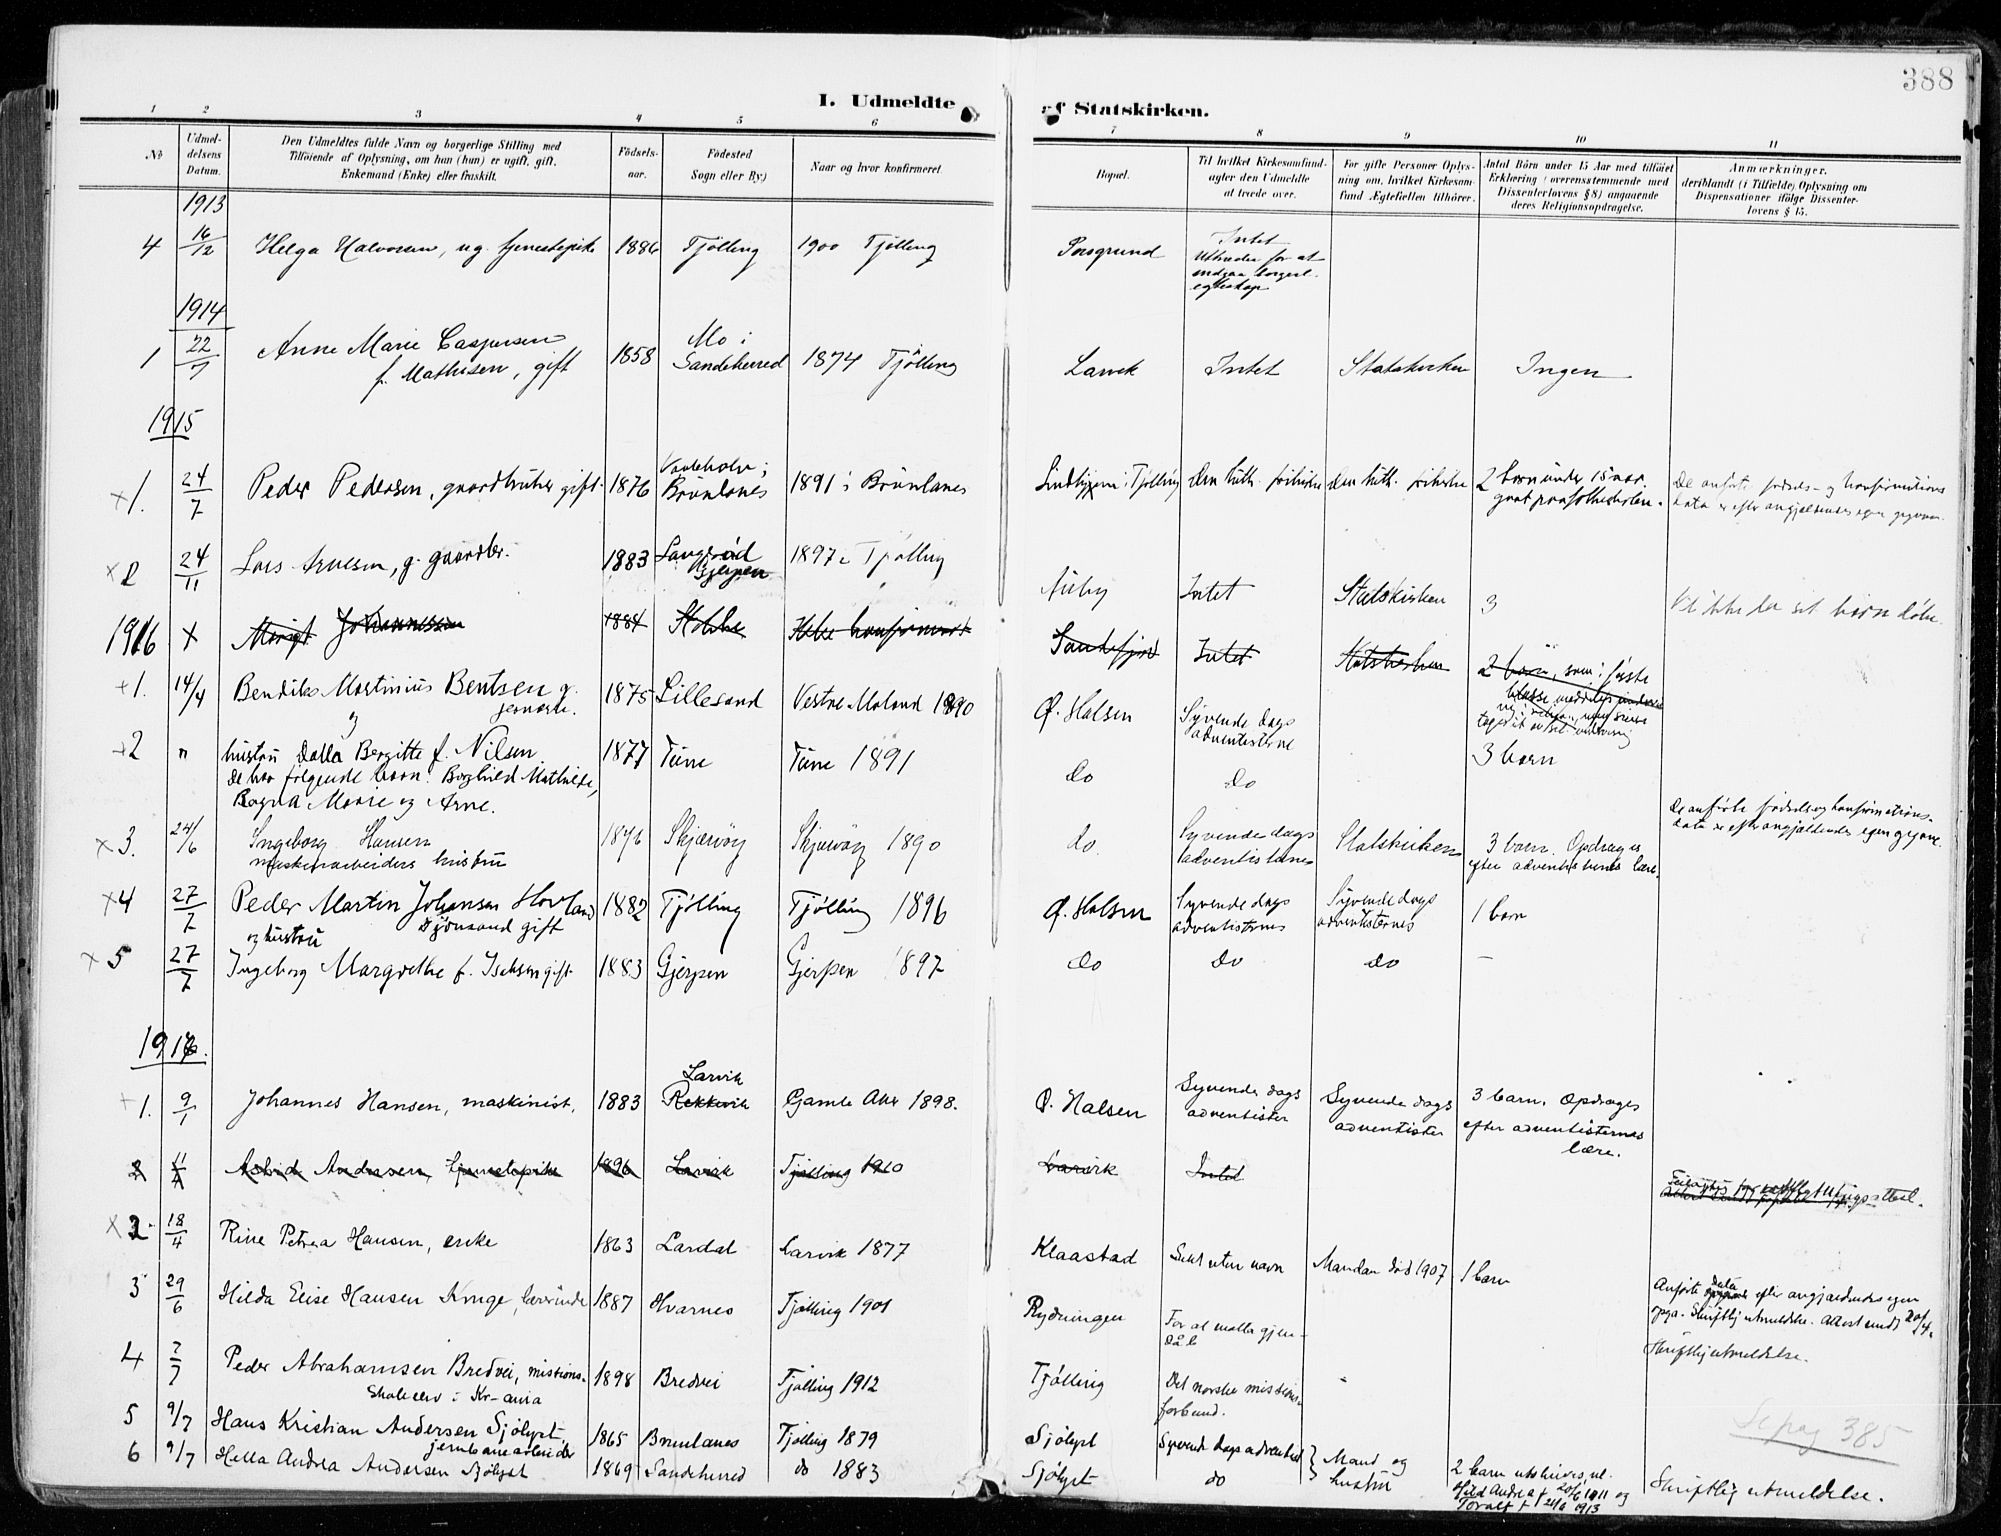 388
I. Udmeldte af Statskirken.
1 2 3 4 5 6 7 8 9 10 11
No
Udmel-
delsens
Datum.
Den Udmeldtes fulde Navn og borgerlige Stilling med
Tilföiende af Oplysning, om han (hun) er ugift, gift,
Enkemand (Enke) eller fraskilt.
Födsels-
aar.
Födested
Sogn eller By)
Naar og hvor konfirmeret.
Bopæl.
Til hvilket Kirkesamfund-
agter den Udmeldte
at træde over.
For gifte Personer Oplys-
ning om, hvilket Kirkesam-
fund Ægtefællen tilhörer.
Antal Börn under 15 Aar med tilföiet
Erklæring (overensstemmende med
Dissenterlovens § 8) angaaende
deres Religionsopdragelse.
Anmærkninger.
deriblandt (i Tilfælde) Oplysning om
Dispensationer ifölge Dissenter-
lovens § 15.
1913
4 16/12 Helga Halvorsen, ug. tjenestepike 1886 Tjølling 1900 Tjølling Porsgrund Intet
Uttræder for at
indgaa borgerl.
egteskap
1914
1 22/7 Anne Marie Caspersen
f. Mathisen, gift 1858 Mo i
Sandeherred 1874 Tjølling Larvik Intet Statskirken Ingen
1915
x 1. 24/7 Peder Pedersen, gaardbruker gift 1876 Brunlanes 1891 i Brunlanes Tjølling den luth. frikirke den luth. frikirke 2 barn under 15 aar.
De anførte fødsels- og konfirmations
data er efter angjældendes egen
x 2 24/11 Lars g. gaardbr. 1883 Langerød
Gjerpen 1897 i Tjølling Auby Intet Statskirken 3 Vil ikke la sit barn døbe.
1916 x Johannessen 1884 Ikke konfirmert Sandefjord Intet Statskirken 2 barn, som i første
klasse
+ 1. 14/4 Bendiks Martinius Bentsen g.
1875 Lillesand Vestre Moland 1890 Ø. Halsen Syvende dags
adventisterne
2 " hustru Bergitte f. Nilsen
De har følgende barn: Borghild Mathilde,
Ragna Marie og Arne. 1877 Tune Tune 1891 do do 3 barn
x 3. 24/6 Ingeborg Hansen
maskinarbeiders hustru 1876 Skjærvøy Skjærvøy 1890 do. Syvende dags
adventisternes Statskirken 3 barn. Opdrages
efter adventisternes lære.
De anførte fødsels og konfirmations-
data er efter angjældendes egen opgave.
x 4 27/7 Peder Martin Johansen Hovland
gift
og hustru 1882 Tjølling Tjølling 1896 Ø. Halsen Syvende dags
adventisternes Syvende dags
adventisternes 1 barn
x 5 27/7 Ingeborg Margrethe f. Isaksen gift 1883 Gjerpen Gjerpen 1897 do do do —
1917.
+ 1. 9/1 Johannes Hansen, maskinist, 1883 Larvik
Rekkevik Gamle Aker 1898. Ø. Halsen Syvende dags
adventister Syvende dags
adventister 3 barn. Opdrages
efter adventisternes
lære.
2 11/4 Astrid Andersen, tjenestepike 1896 Larvik Tjølling 1910 Larvik Intet
x 2 18/4 Rine Petrea Hansen, enke 1863 Lardal Larvik 1877 Klaastad Sekt uten navn Manden død 1907 1 barn
Anførte data efter angjældendes egen
opga. Skriftlig utmeldelse. Attest sendt 20/4.
3 29/6 Hilda Elise Hansen Kruge, lærerinde 1887 Hvarnes Tjølling 1901 Rydningen For at motta gjen-
dåb Skriftlig utmeldelse.
4 7/7 Peder Abrahamsen Bredvei, missions-
skoleelev i Kr-ania 1898 Bredvei Tjølling 1912 Tjølling Det norske missions-
forbund.
5 9/7 Hans Kristian Andersen Sjølyst,
jernbanearbeider 1865 Brunlanes Tjølling 1879 Sjølyst Syvende dags adventist } Mand og
hustru
Se pag 385
6 9/7 Hella Andrea Andersen Sjølyst 1869 Sandeherred do 1883 Sjølyst do 2 barn utskrives, nl.
f. 20/6 1911 og
Toralf f. 21/2 1913 Skriftlig utmeldelse.